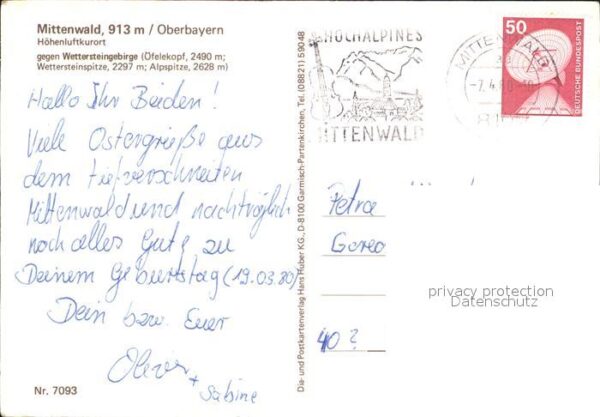 Mittenwald, 913 m / Oberbayern
Höhenluftkurort
gegen Wettersteingebirge (Öfelekopf, 2490 m;
Wettersteinspitze, 2297 m; Alpspitze, 2628 m)
Hallo Ihr Beiden!
Viele Ostergrüße aus
dem tiefverschneiten
Mittenwald und nachträglich
noch alles Gute zu
Deinem Geburtstag (19.03.80)
Dein bzw. Euer
Oliver
+ Sabine
Nr. 7093
Dia- und Postkartenverlag Hans Huber KG., D-8100 Garmisch-Partenkirchen, Tel. (08821) 59048
HOCHALPINES
MITTENWALD
MITTENWALD
50
DEUTSCHE BUNDESPOST
Petra
40?
privacy protection
Datenschutz